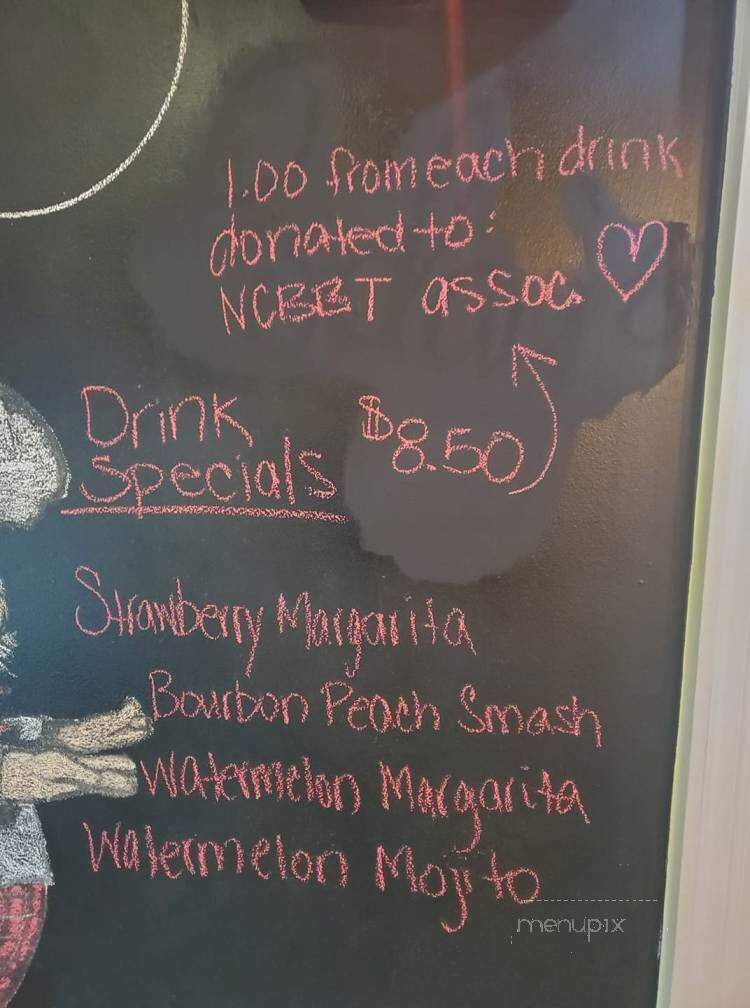 1.00 from each drink
donated to:
NCBBT assoc.
Drink
Specials
$8.50
Strawberry Margarita
Bourbon Peach Smash
Watermelon Margarita
Watermelon Mojito
menupix